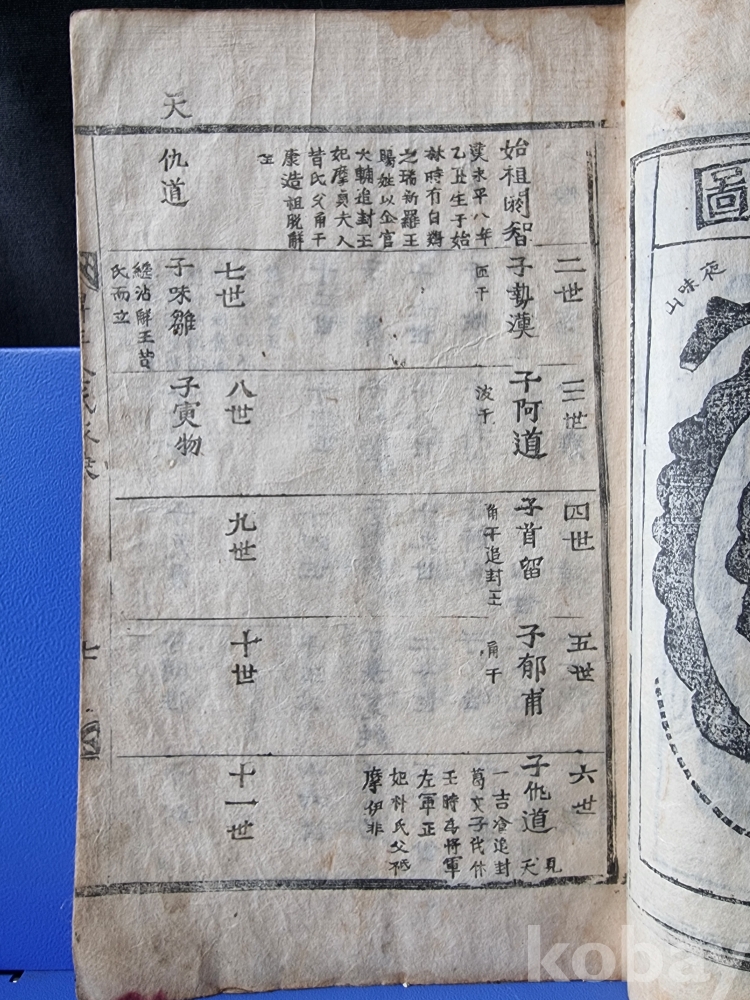 圖
夜味山
始祖閼智
漢永平八年
乙丑生于始
林時有白鷄
之瑞新羅王
賜姓以金官
大輔追封王
妃摩貞夫人
昔氏父角干
康造祖脫解
王
二世
子勢漢
匝干
三世
子阿道
波干
四世
子首留
角干追封王
五世
子郁甫
角干
六世
子仇道
見天
一吉飡追封
葛文子伐休
王時爲將軍
左軍正
妃朴氏父柢
摩伊非
天
仇道
七世
子味鄒
繼沾解王昔
氏而立
八世
子寅物
九世
十世
十一世
七
koba